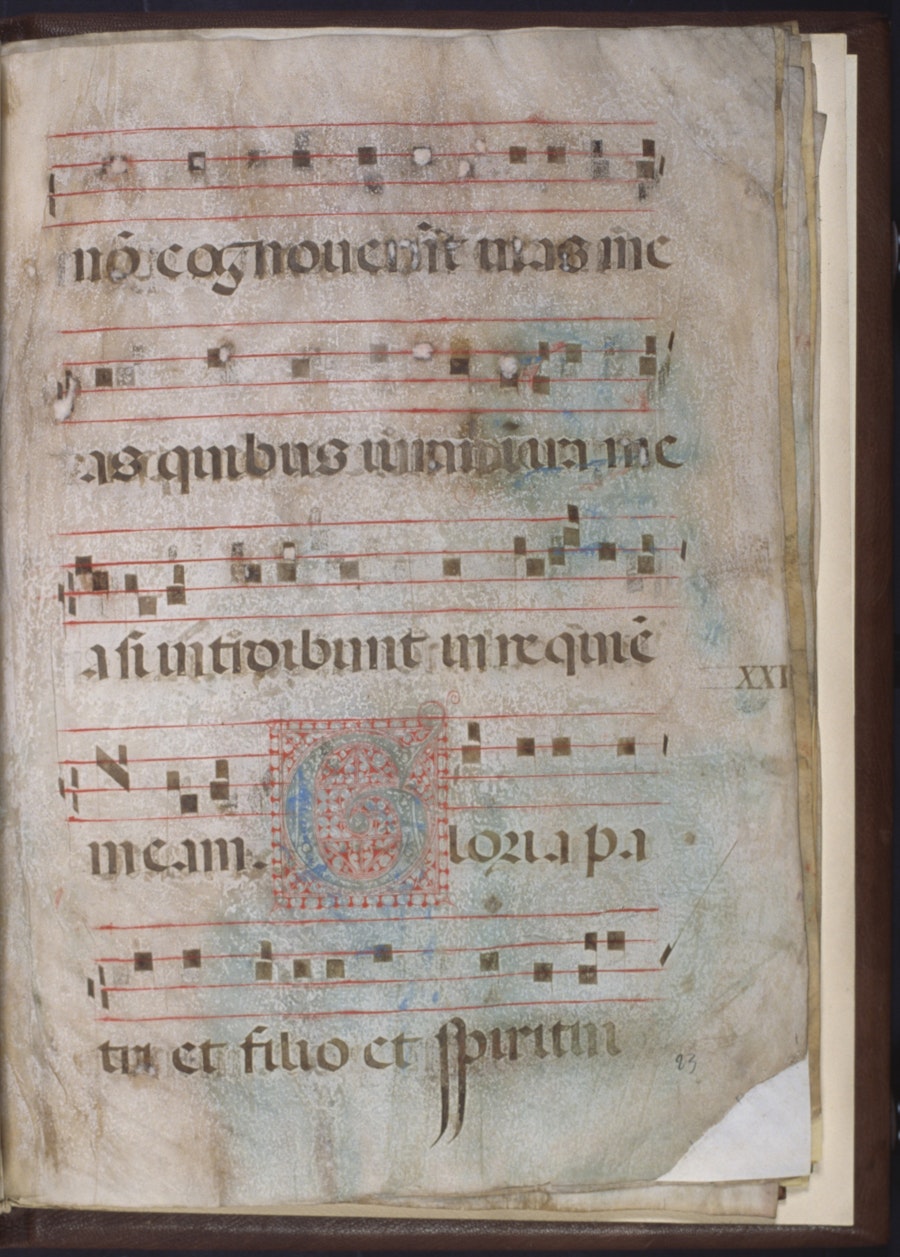 nō cognouerūt uias me
as quibus iuraui in ira me
a si introibunt in requiē
XXI
meam. Gloria pa
tri et filio et spiritui
23